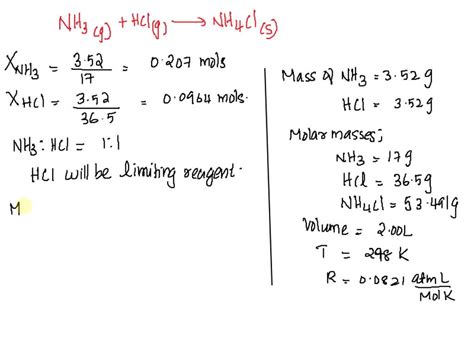 NH3(g) + HCl(g) ⟶ NH4Cl(s)
XNH3 = 3.52/17 = 0.207 mols
XHCl = 3.52/36.5 = 0.0964 mols.
NH3 : HCl = 1:1
HCl will be limiting reagent.
M
Mass of NH3 = 3.52g
HCl = 3.52g
Molar masses;
NH3 = 17g
HCl = 36.5g
NH4Cl = 53.491g
Volume = 2.00L
T = 298 K
R = 0.0821 atm L/Mol K